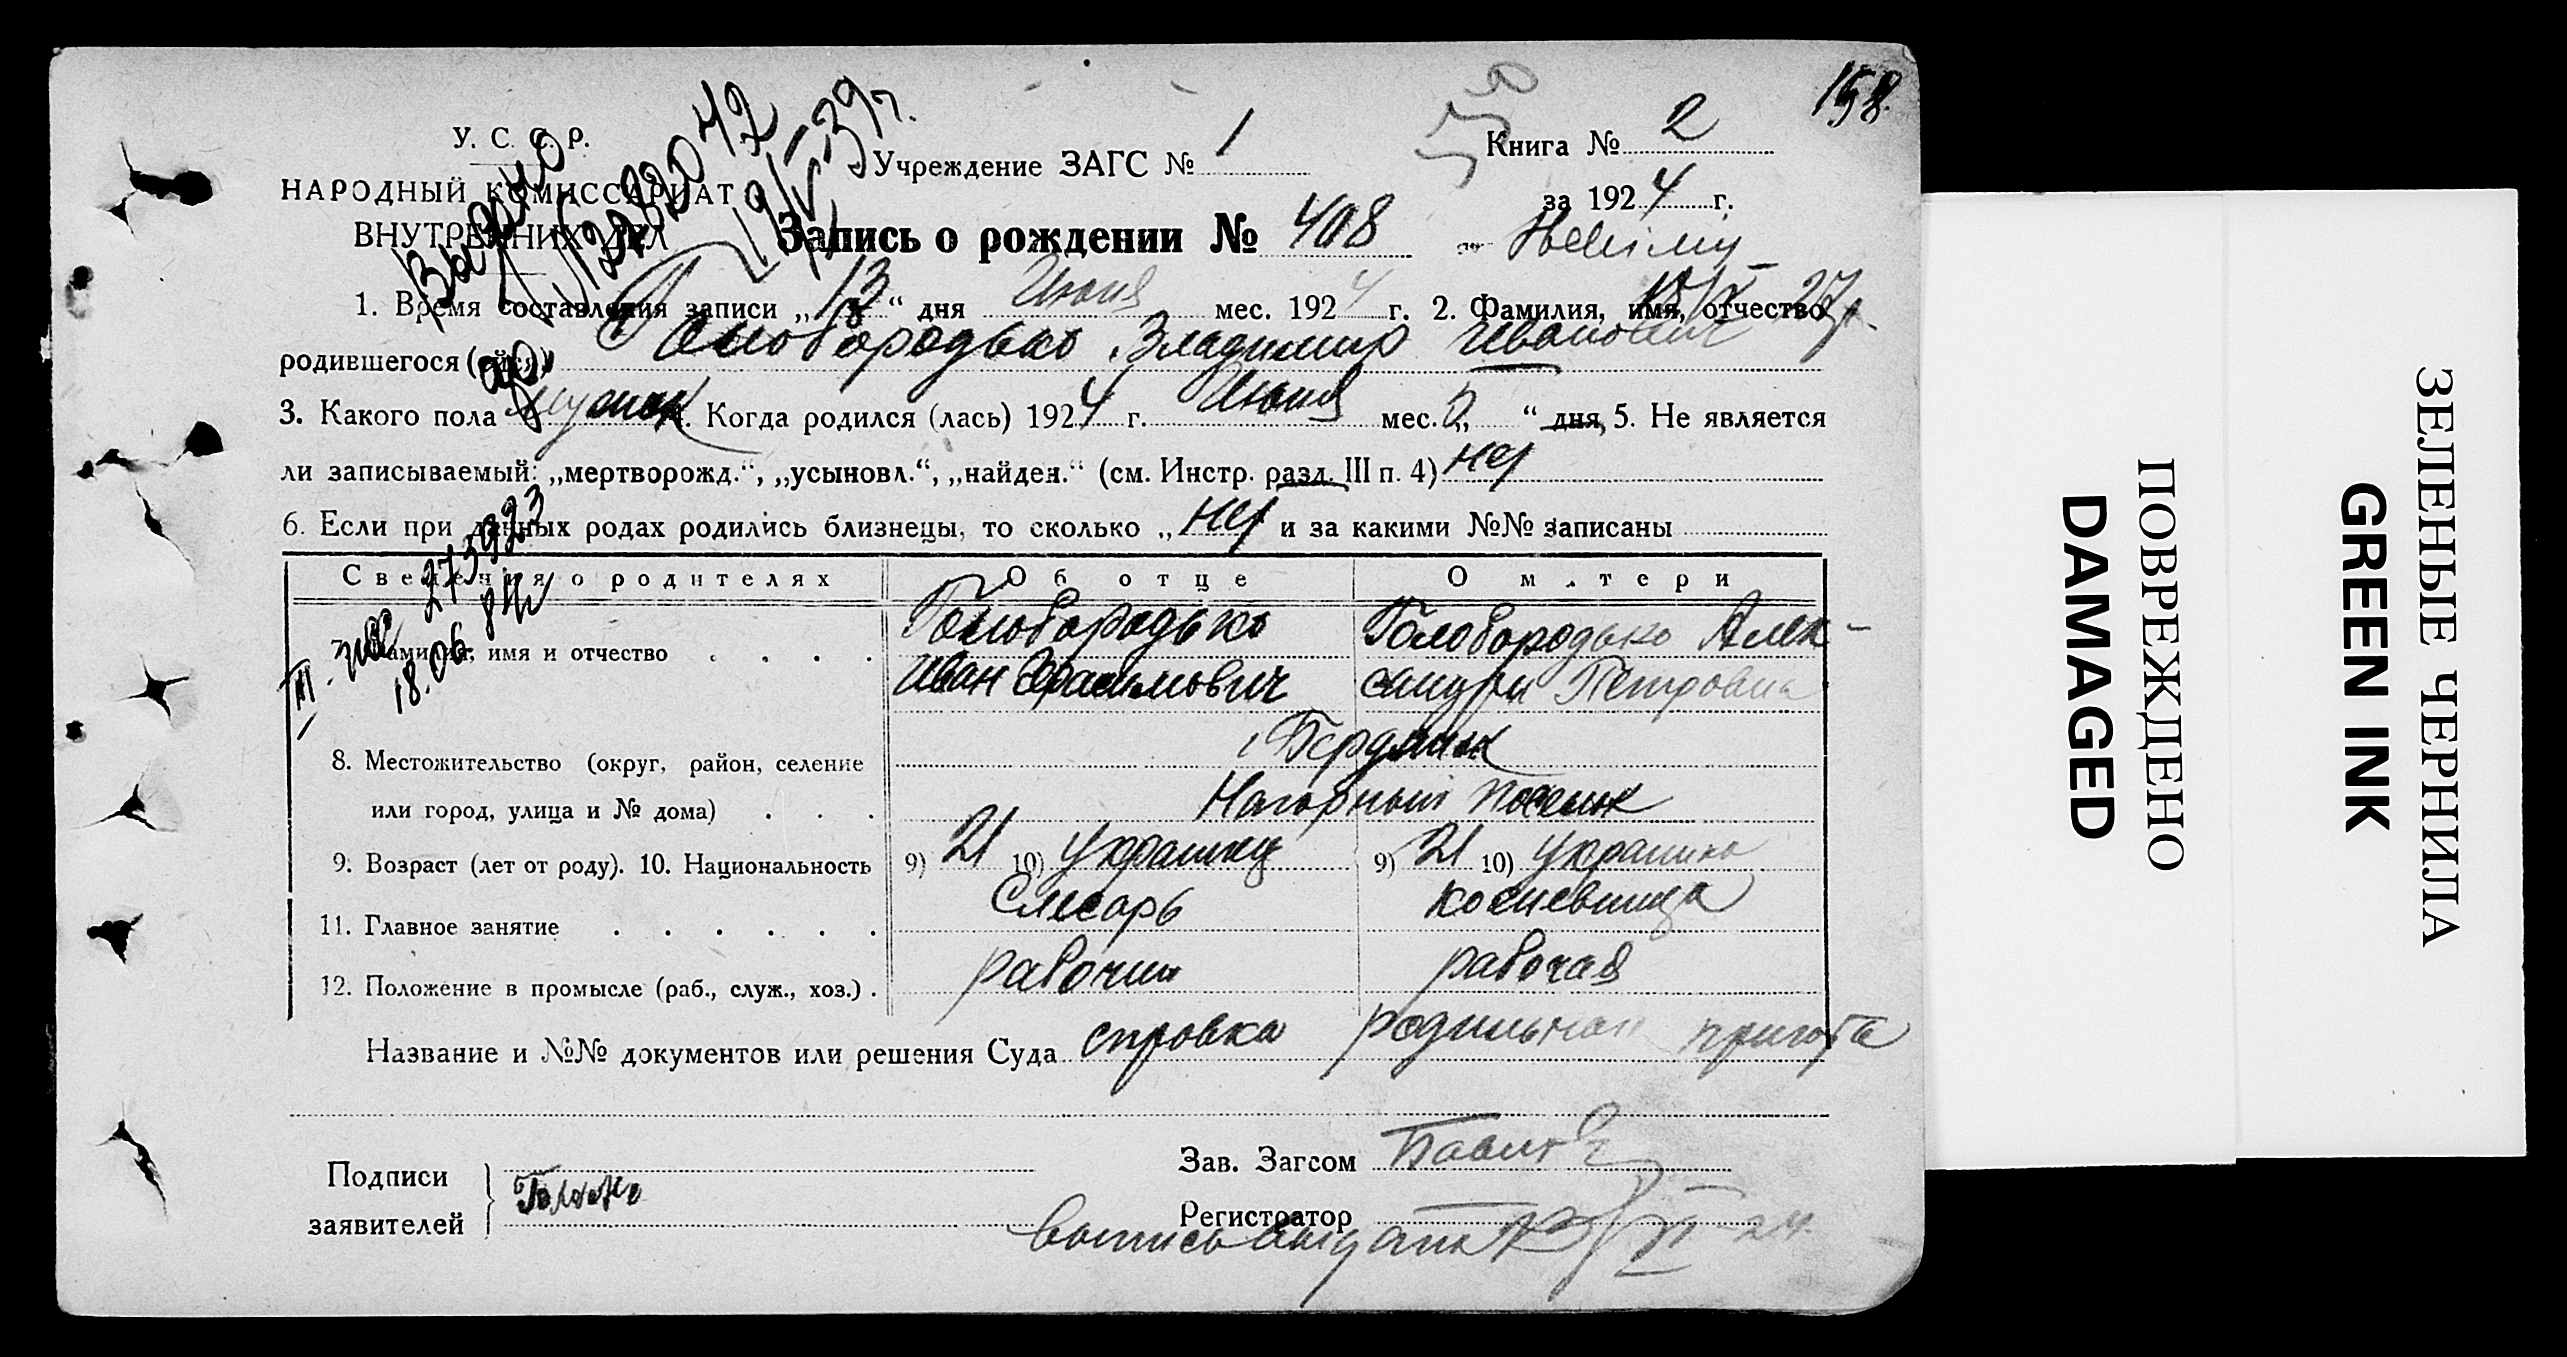 158
У. С. С. Р.
НАРОДНЫЙ КОМИССАРИАТ
ВНУТРЕННИХ ДЕЛ
Учреждение ЗАГС № 1
Книга № 2
за 1924 г.
Запись о рождении № 408
1. Время составления записи „13“ дня Июня мес. 1924 г. 2. Фамилия, имя, отчество
родившегося (ейся) Голобородько Владимир Иванович
3. Какого пола мужск 4. Когда родился (лась) 1924 г. Июня мес. „ “ дня, 5. Не является
ли записываемый: „мертворожд.“, „усыновл.“, „найден.“ (см. Инстр. разд. III п. 4) нет
6. Если при данных родах родились близнецы, то сколько „нет и за какими №№ записаны
Сведения о родителях Об отце О матери
7. Фамилия, имя и отчество
Голобородько Иван
Голобородько Александра Петровна
8. Местожительство (округ, район, селение
или город, улица и № дома)
Бердянск
Нагорный поселок
9. Возраст (лет от роду). 10. Национальность 9) 21 10) украинец 9) 21 10) украинка
11. Главное занятие Слесарь
12. Положение в промысле (раб., служ., хоз.) рабочий рабочая
Название и №№ документов или решения Суда справка родильного приюта
Подписи
заявителей
Зав. Загсом
Регистратор
Выдано
19/V-39 г.
273923
18.06.
ПОВРЕЖДЕНО
DAMAGED
ЗЕЛЕНЫЕ ЧЕРНИЛА
GREEN INK